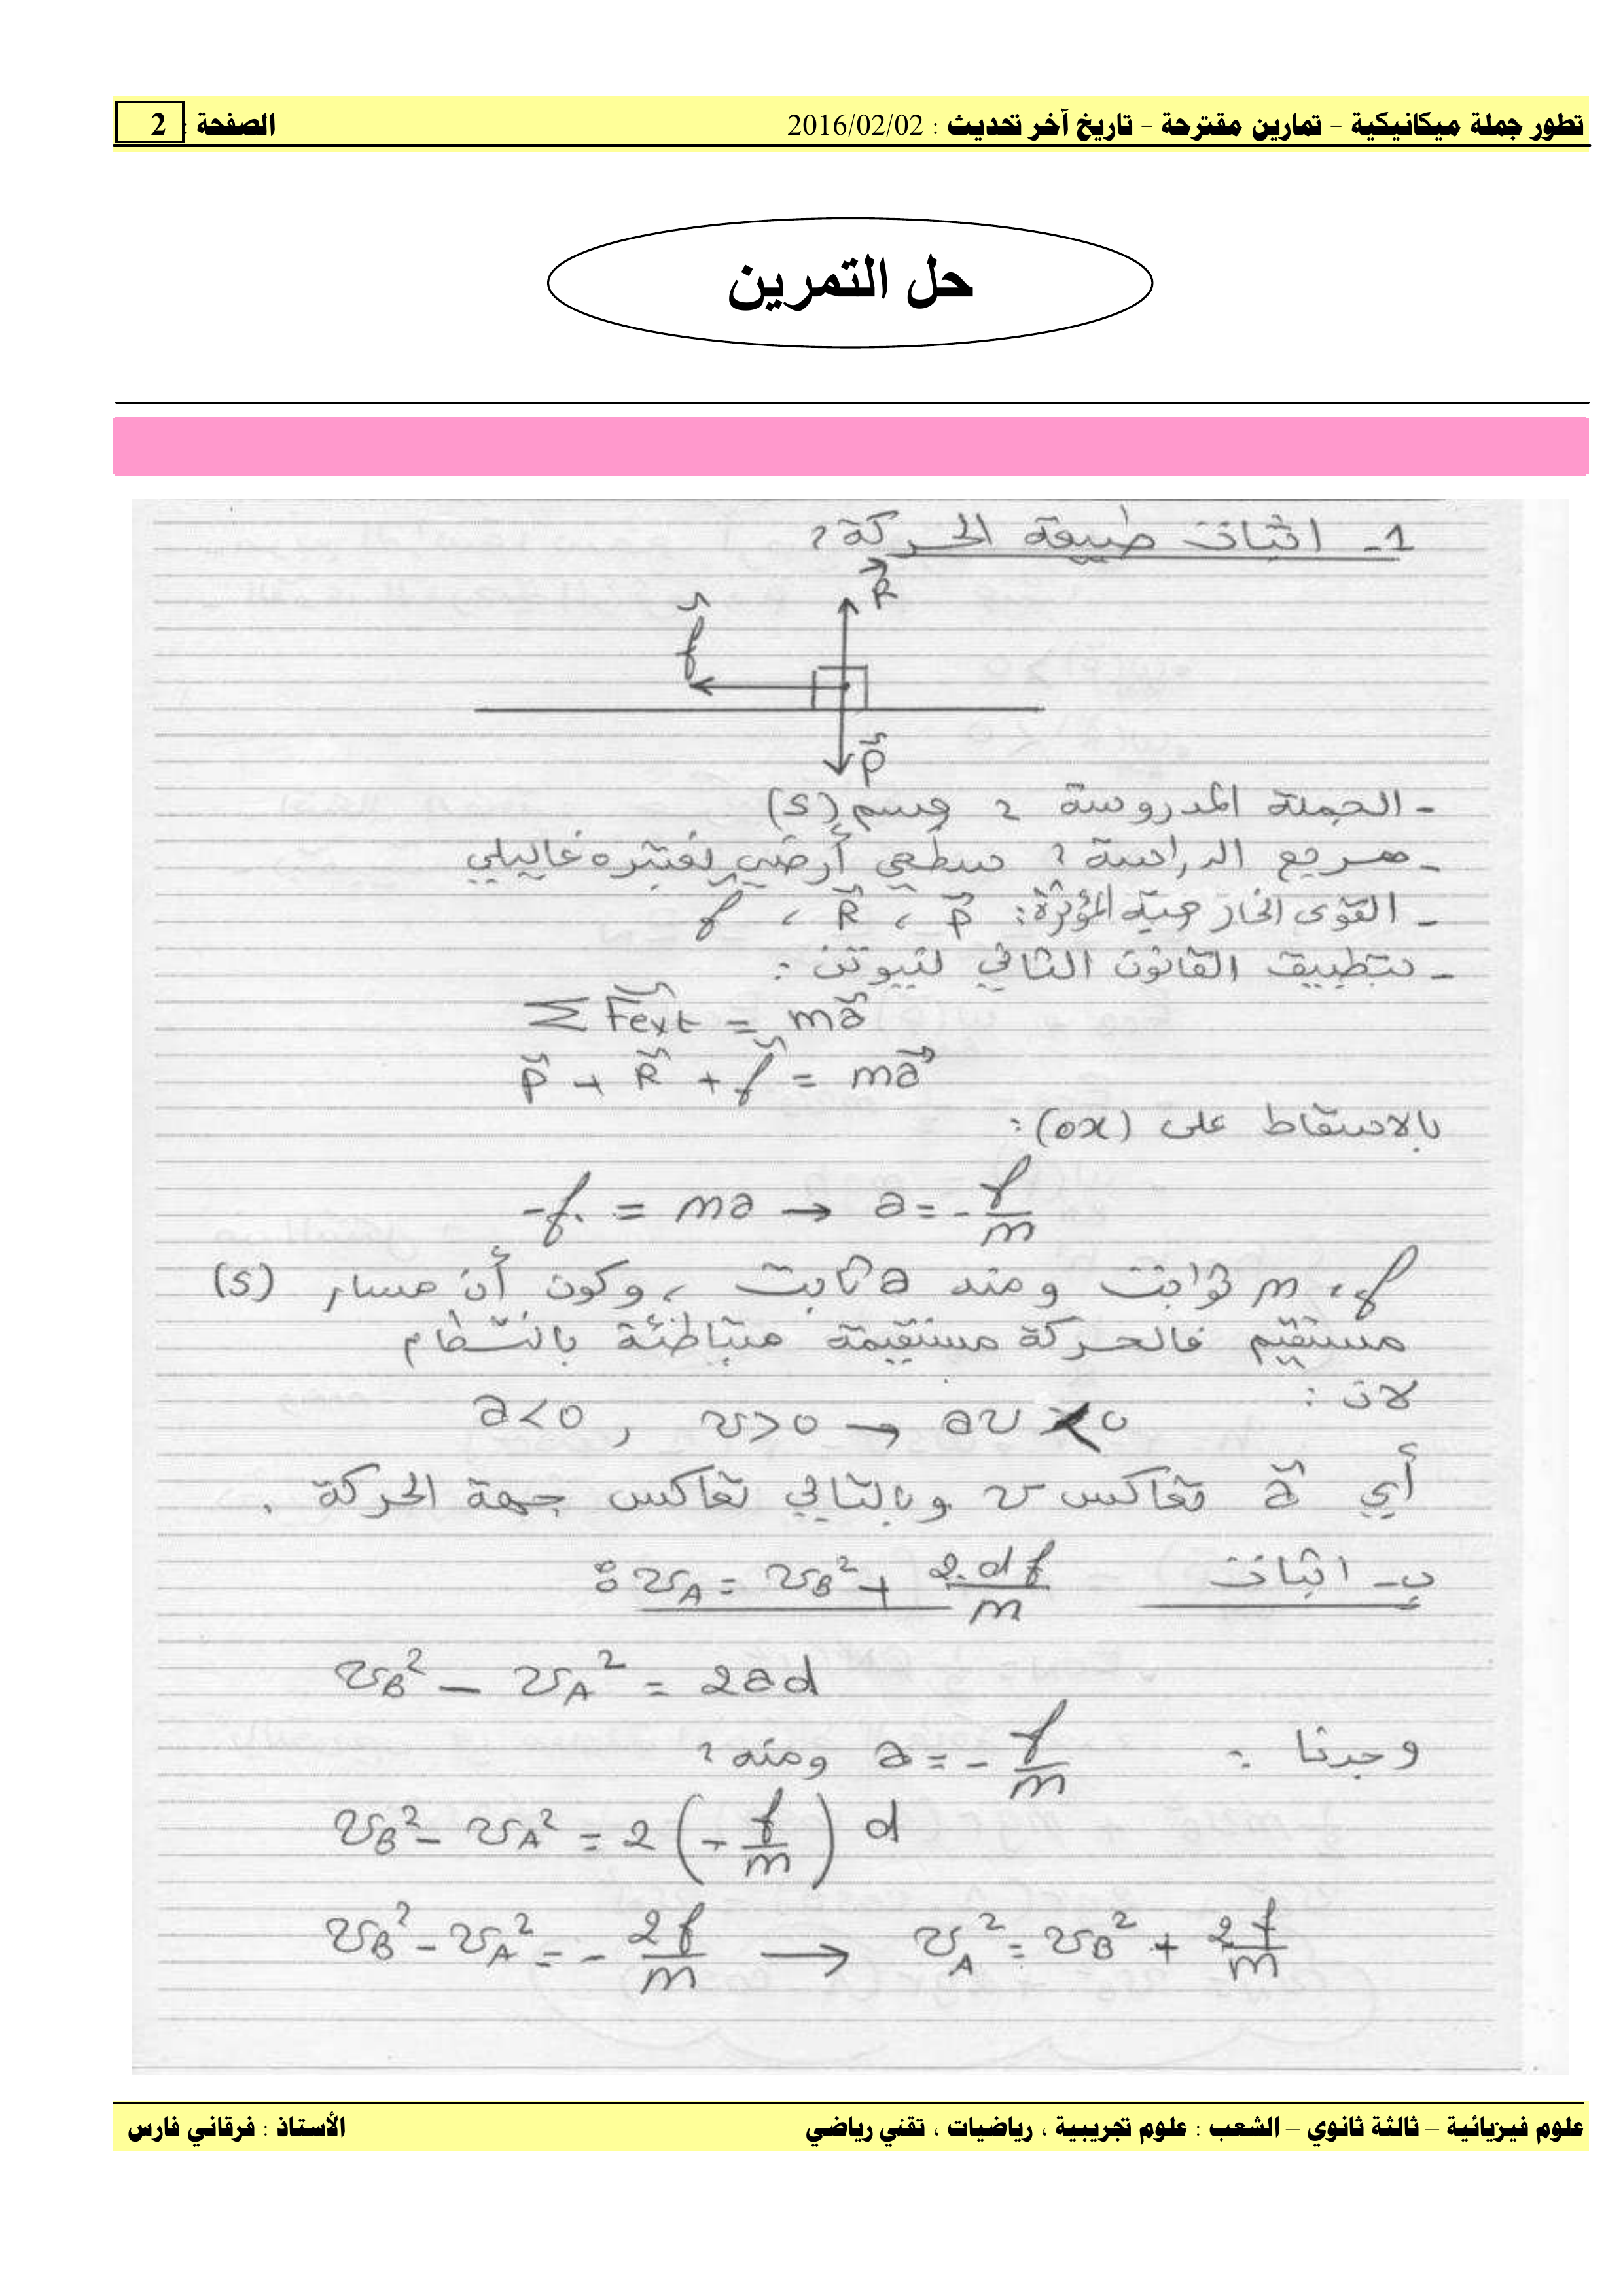 تطور جملة ميكانيكية – تمارين مقترحة – تاريخ آخر تحديث : 2016/02/02 الصفحة : 2
حل التمرين
1- اثبات طبيعة الحركة :
R
f
P
- الجملة المدروسة : جسم (S)
- مرجع الدراسة : سطحي أرضي نعتبره غاليلي
- القوى الخارجية المؤثرة : P ، R ، f
- بتطبيق القانون الثاني لنيوتن :
∑ Fext = ma
P + R + f = ma
بالاسقاط على (ox) :
-f = ma → a = - f/m
f ، m ثوابت ومنه a ثابت ، وكون أن مسار (S)
مستقيم فالحركة مستقيمة متباطئة بانتظام
لان :
a<0 , v>0 → av < 0
أي a تعاكس v وبالتالي تعاكس جهة الحركة .
ب- اثبات vA = vB² + 2.d f/m :
vB² - vA² = 2ad
وجدنا : a = - f/m ومنه :
vB² - vA² = 2 (- f/m) d
vB² - vA² = - 2f/m → vA² = vB² + 2f/m
علوم فيزيائية – ثالثة ثانوي – الشعب : علوم تجريبية ، رياضيات ، تقني رياضي الأستاذ : فرقاني فارس